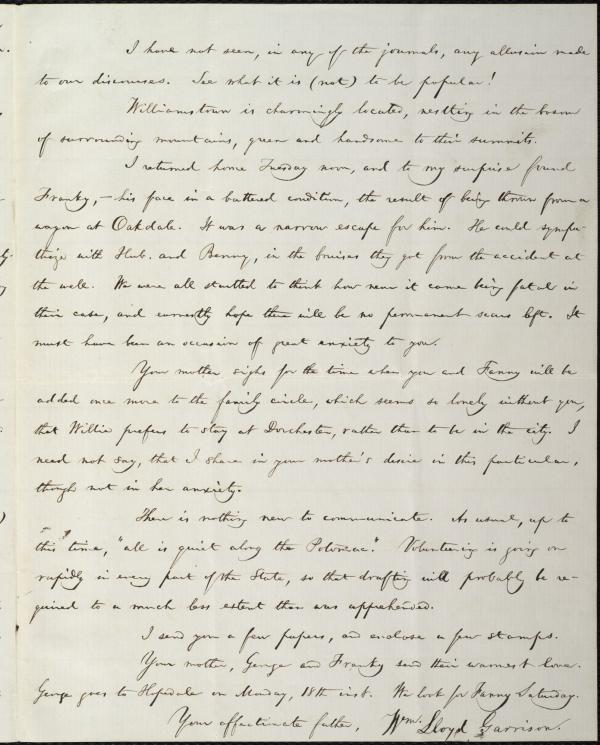 I have not seen, in any of the journals, any allusion made
to our discourses. See what it is (not) to be popular!
Williamstown is charmingly located, nestling in the bosom
of surrounding mountains, green and handsome to their summits.
I returned home Tuesday noon, and to my surprise found
Franky, — his face in a battered condition, the result of being thrown from a
wagon at Oakdale. It was a narrow escape for him. He could sympa-
thize with Hub. and Benny, in the bruises they got from the accident at
the well. We were all startled to think how near it came being fatal in
their case, and earnestly hope there will be no permanent scars left. It
must have been an occasion of great anxiety to you.
Your mother sighs for the time when you and Fanny will be
added once more to the family circle, which seems so lonely without you,
that Willie prefers to stay at Dorchester, rather than to be in the city. I
need not say, that I share in your mother's desire in this particular,
though not in her anxiety.
There is nothing new to communicate. As usual, up to
this time, "all is quiet along the Potomac." Volunteering is going on
rapidly in every part of the State, so that drafting will probably be re-
quired to a much less extent than was apprehended.
I send you a few papers, and enclose a few stamps.
Your mother, George and Franky send their warmest love.
George goes to Hopedale on Monday, 18th inst. We look for Fanny Saturday.
Your affectionate father, Wm. Lloyd Garrison.